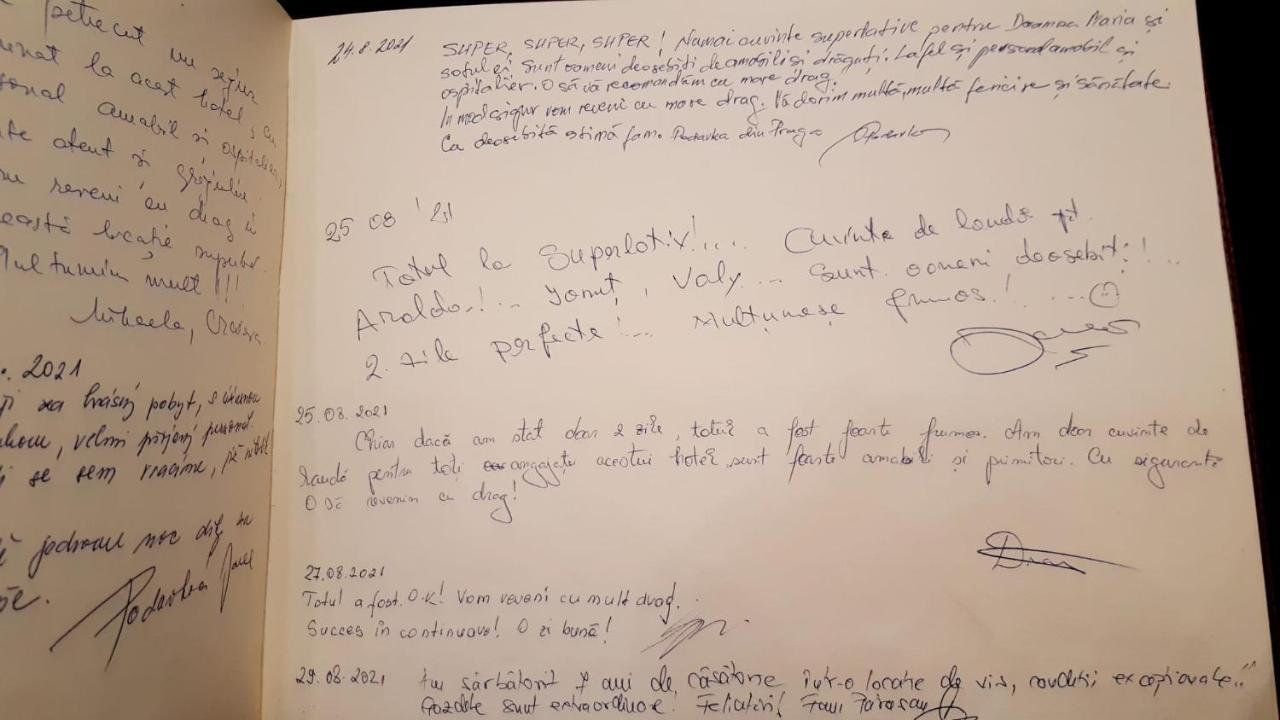 petrecut un sejur
minunat la acest hotel, cu
personal amabil si ospitalier,
atent si grijuliu.
reveni cu drag in
această locație superbă.
Multumim mult !!!
Mihaela, Craiova
2021
za krásný pobyt, s
velmi příjemný personál.
se sem vracíme,
jednou moc díky za
24.8.2021
SUPER, SUPER, SUPER! Numai cuvinte superlative pentru Doamna Maria și
soțul ei. Sunt oameni deosebiți de amabili si drăguți. La fel și personal amobil și
ospitalier. O să vă recomandăm cu mare drag.
In mod sigur vom reveni cu mare drag. Vă dorim multă, multă fericire și sănătate
Cu deosebită stimă fam. Podavka din Praga
25 08 '21
Totul la Superlativ!.... Cuvinte de laudă pt.
Analda!... Ionuț, Valy... Sunt oameni deosebiți!...
2 zile perfecte!... Mulțumesc frumos!....
25.08.2021
Chiar dacă am stat doar 2 zile, totul a fost foarte frumos. Am doar cuvinte de
laudă pentru toți angajații acestui hotel, sunt foarte amabili și primitori. Cu siguranta
O să revenim cu drag!
27.08.2021
Totul a fost O.K! Vom reveni cu mult drag.
Succes în continuare! O zi bună!
29.08.2021
Am sărbătorit 7 ani de căsătorie într-o locație de vis, condiții excepționale..
Gazdele sunt extraordinare! Felicitări! Fam